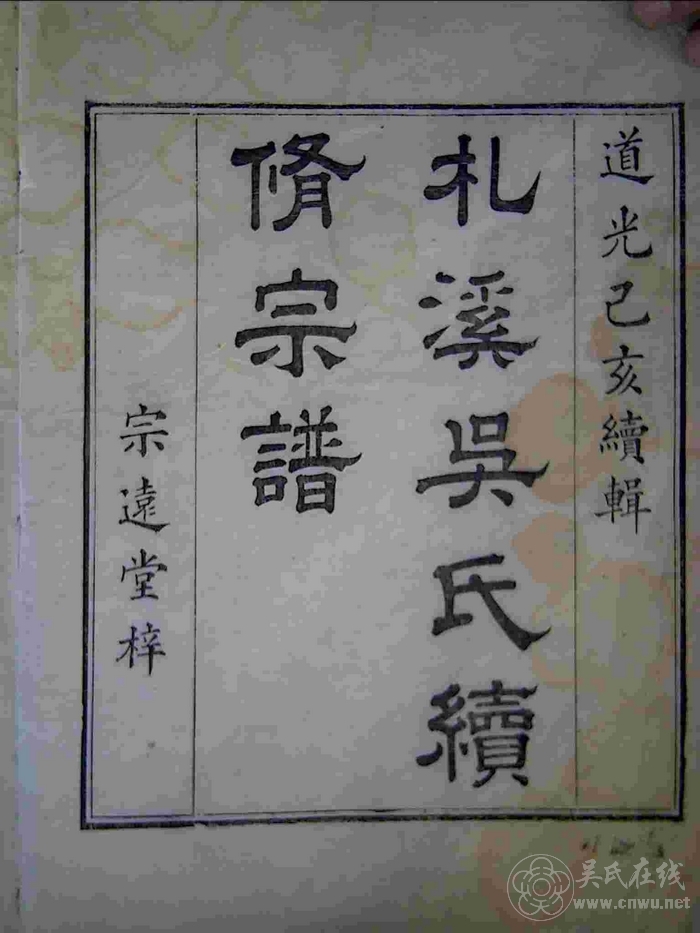 道光己亥續輯
札溪吳氏續
脩宗譜
宗遠堂梓
吴氏在线
www.cnwu.net